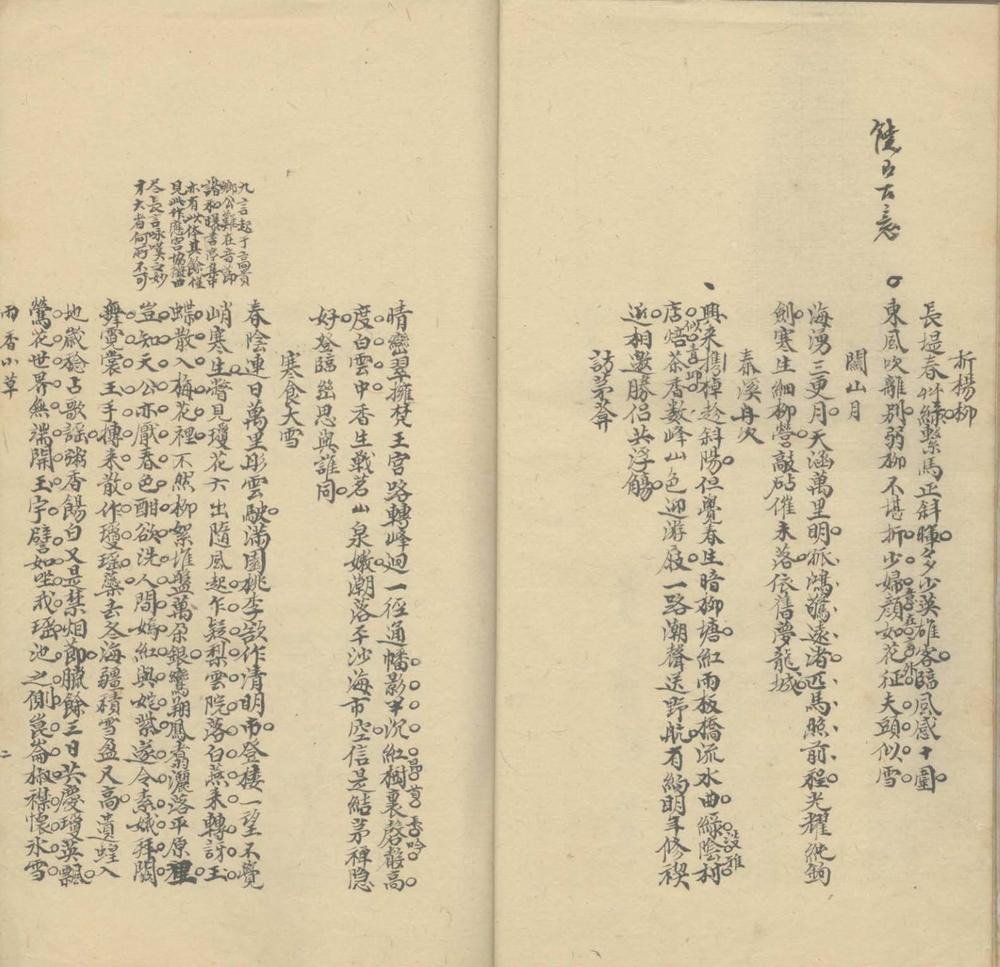 饒有古意
折楊柳
長堤春艸綠繫馬正斜暉多少英雄客臨風感十圍
東風吹離別弱柳不堪折少婦顏如花征夫頭似雪
音在言外
關山月
海湧三更月天涵萬里明孤鴻驚遠渚匹馬照前程光耀純鉤
劍寒生細柳營敲砧催未落依舊夢龍城
春溪舟次
興來攜棹趁斜陽但覺春生暗柳塘紅雨板橋流水曲綠陰村
淡雅
店焙茶香數峰山色迎游屐一路潮聲送野航有約明年修禊
似青邱
逐相邀勝侶共浮觴
訪茅菴
晴巒翠擁梵王宮路轉峰迴一徑通幡影中沉紅樹裏磬聲高
度白雲中香生戰茗山泉嫩潮落平沙海市空信是結茅禪隱
好登臨幽思與誰同
寒食大雪
九言起于高貴
鄉公難在音節
諧和曝書亭集中
亦有此體其餘僅
見此作應宮協徵曲
盡長言咏嘆之妙
才大者何所不可
春陰連日萬里彤雲駛滿園桃李欲作清明市登樓一望不覺
峭寒生瞥見瓊花六出隨風起乍疑梨雲院落白燕來轉訝玉
蝶散入梅花裡不然柳絮堆盤萬朵銀鸞翔鳳翥灑落平原裡
豈知天公亦厭春色酣欲洗人間嫣紅與姹紫遂令素娥拜闕
舞霓裳玉手摶來散作瓊瑤蘂去冬海疆積雪盈尺高遺蝗入
地歲稔占歌謠粥香餳白又是禁烟節臘餘三日共慶瓊英飄
鶯花世界無端開玉宇譬如坐我瑤池之側崑崙椒襟懷冰雪
雨香小草
二